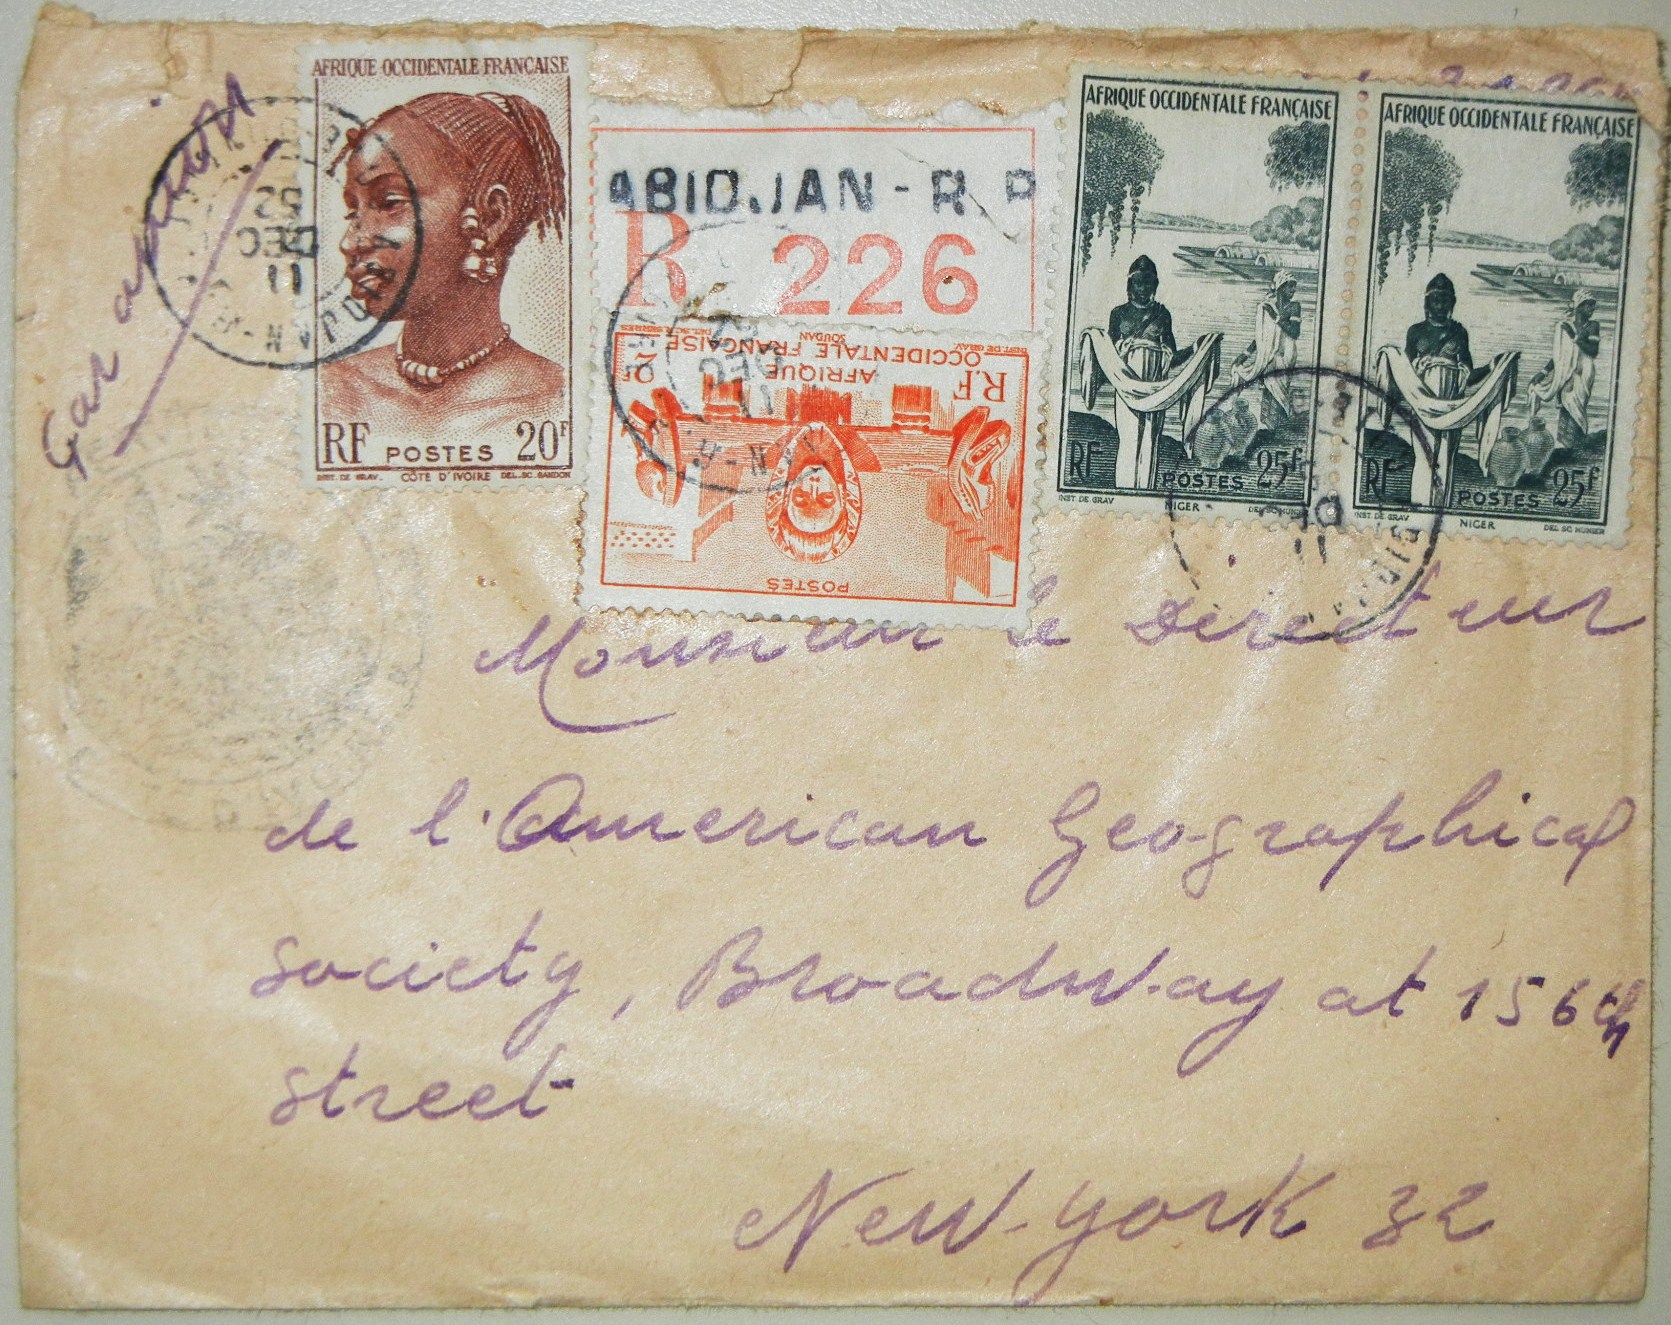 Par avion
AFRIQUE OCCIDENTALE FRANÇAISE
RF POSTES 20F
INST. DE GRAV. CÔTE D'IVOIRE DEL. SC. BARDON
11
DEC
52
ABIDJAN - R. P
R 226
11
DEC
R.F AFRIQUE OCCIDENTALE FRANÇAISE 2F
INST. DE GRAV. SOUDAN
POSTES
AFRIQUE OCCIDENTALE FRANÇAISE
RF POSTES 25F
INST DE GRAV NIGER DEL SC HUNIER
AFRIQUE OCCIDENTALE FRANÇAISE
RF POSTES 25F
INST DE GRAV NIGER DEL SC HUNIER
11
Monsieur le Directeur
de l'American Geographical
Society, Broadway at 156th
Street
New-York 32